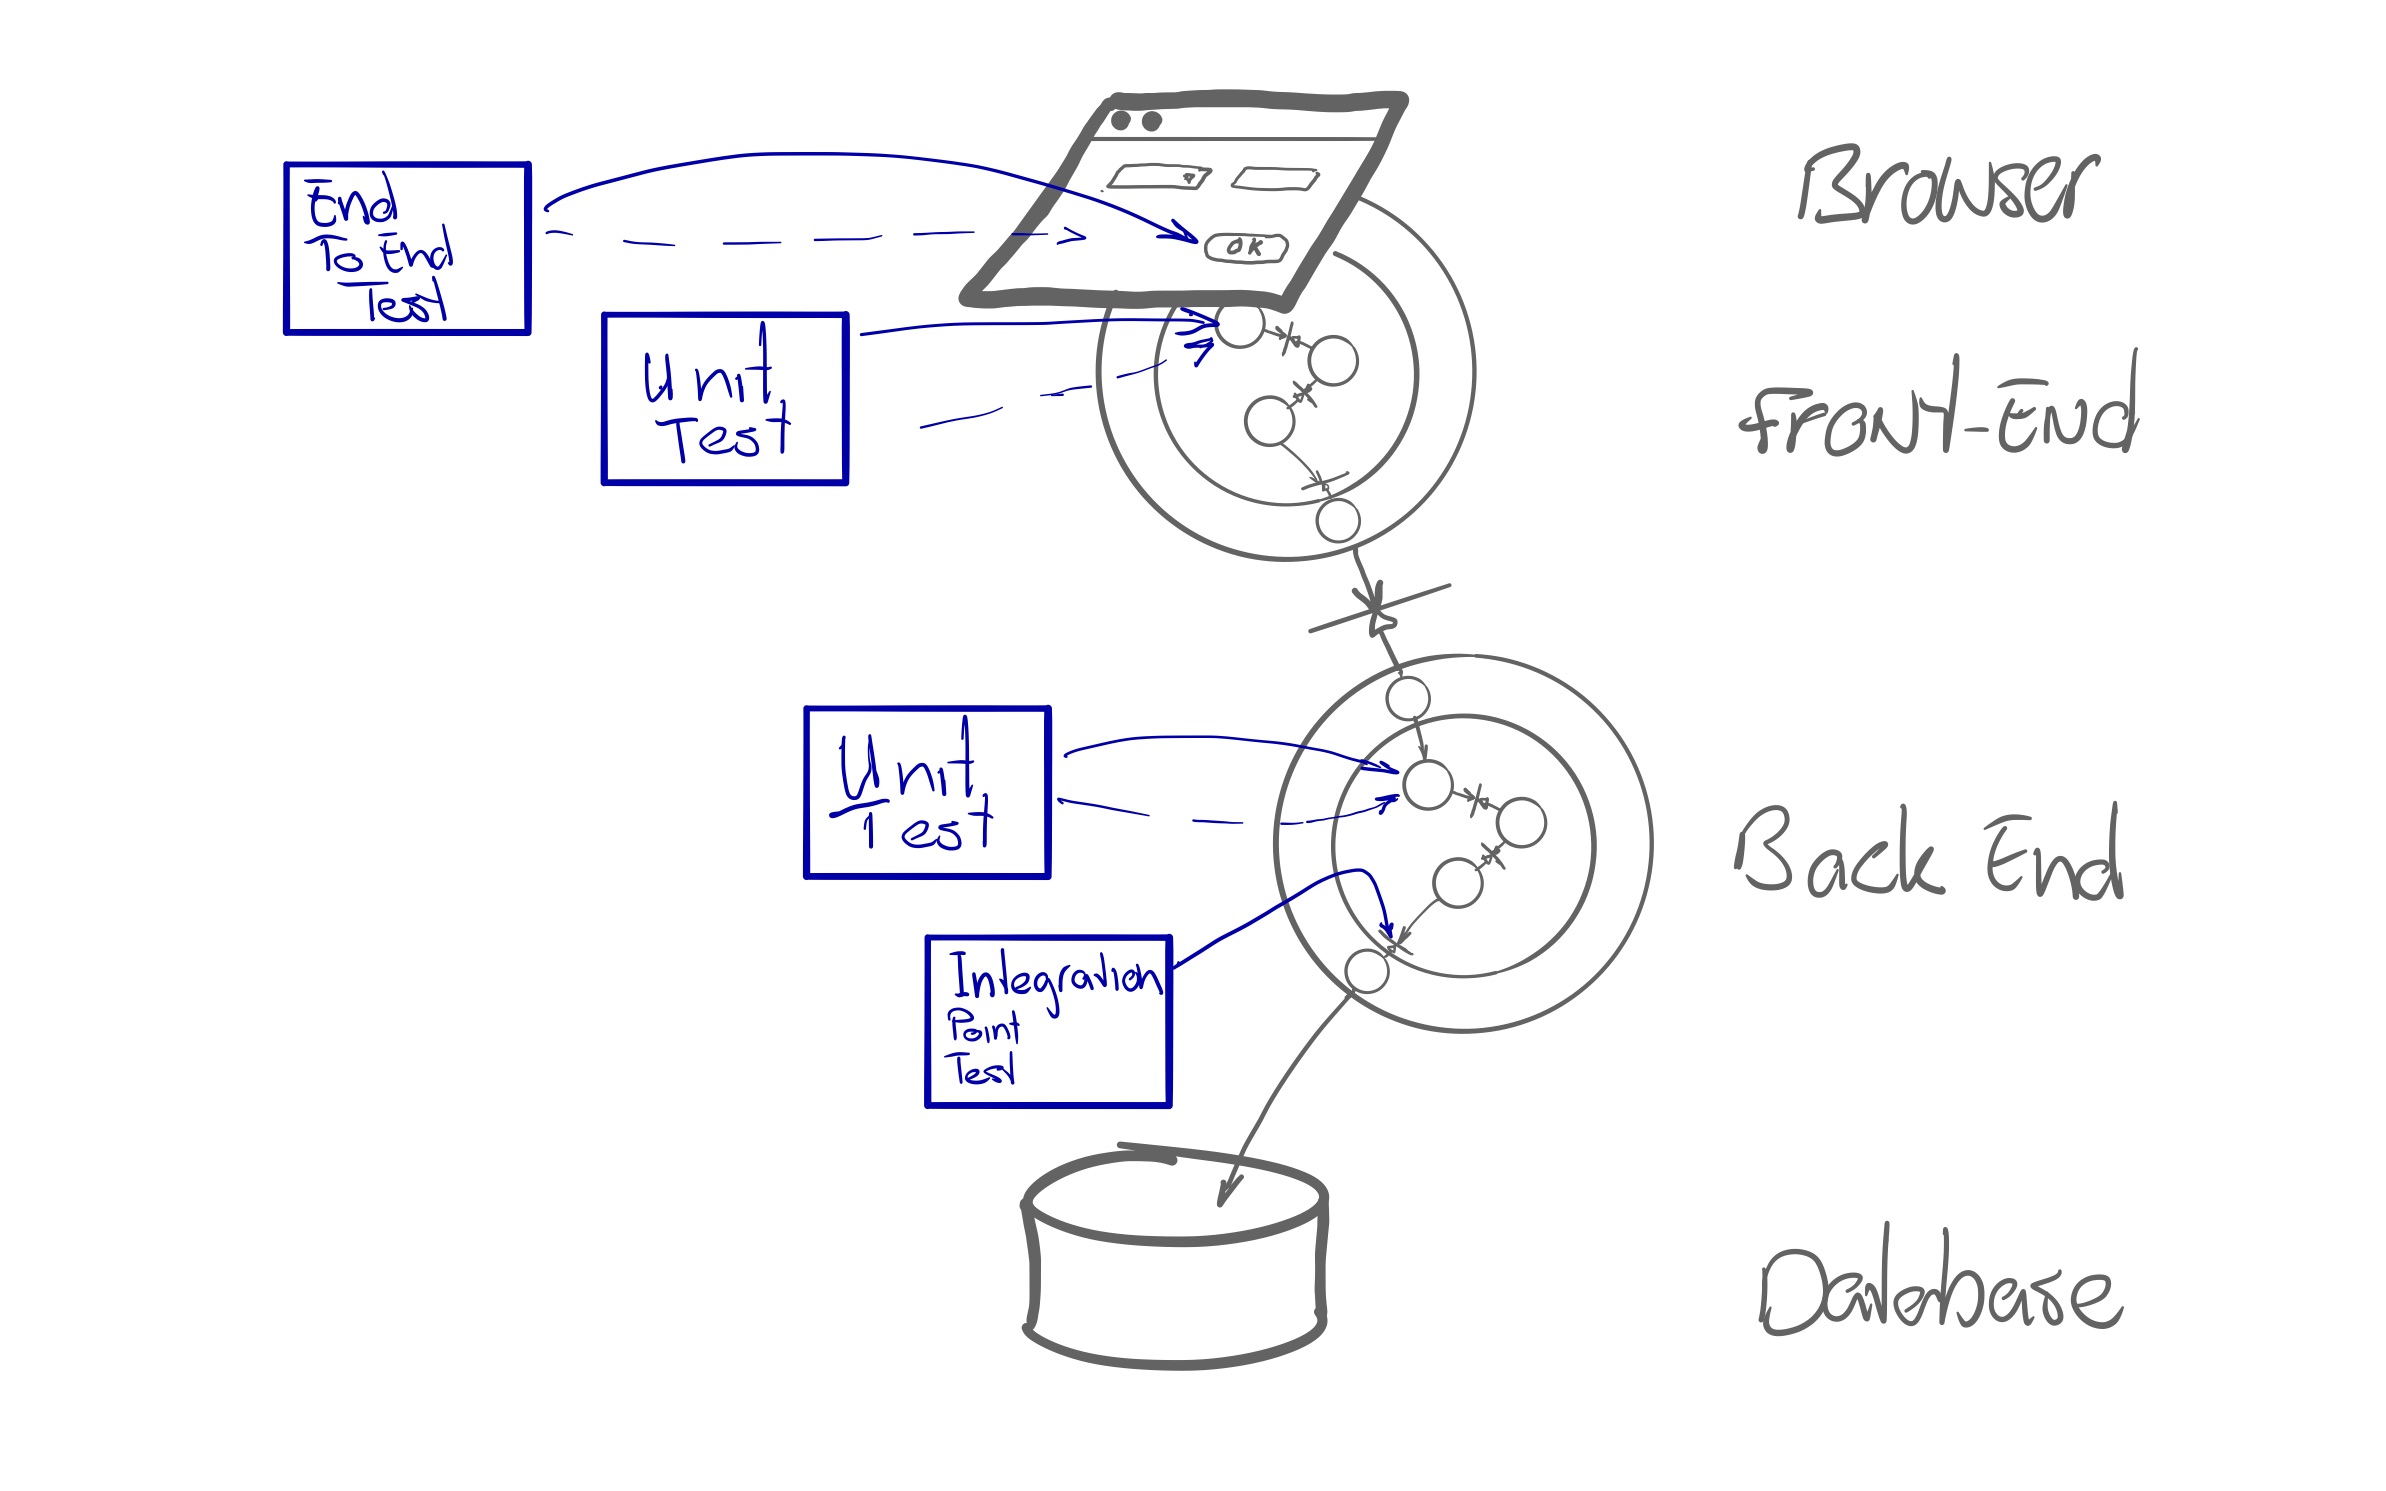 End
To End
Test
OK
Browser
Unit
Test
Front-End
Unit
Test
Back End
Integration
Point
Test
Database